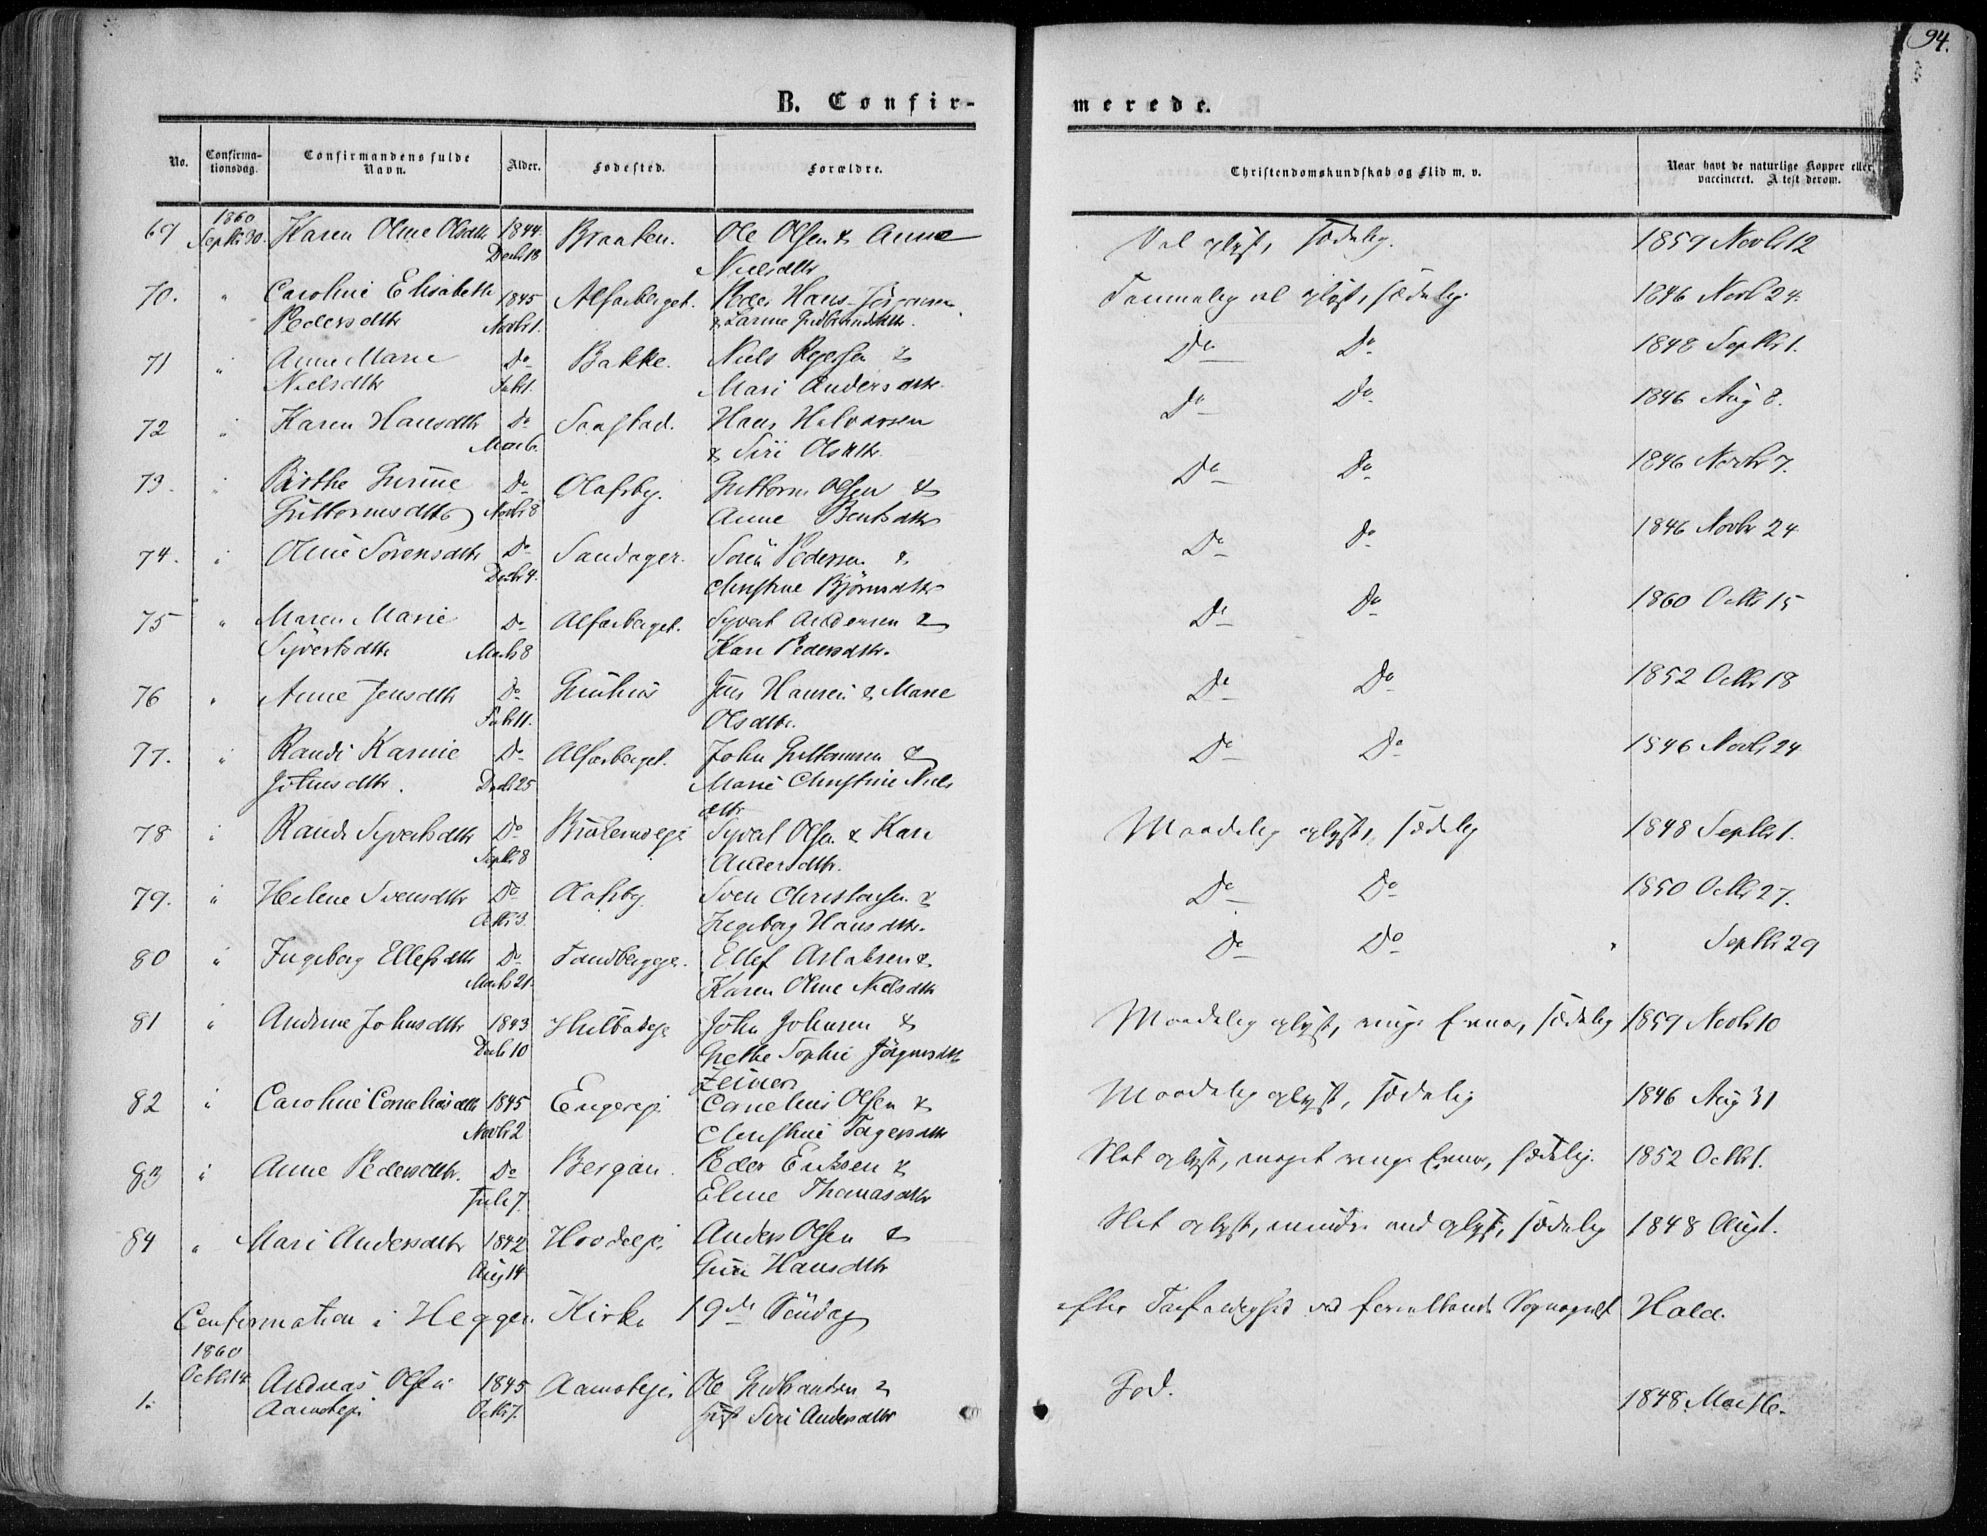 94.
B. Confirmerede.
No. Confirmationsdag. Confirmandens fulde Navn. Alder. Fødested. Forældre. Christendomskundskab og Flid m. v. Naar havt de naturlige Kopper eller vaccineret. Attest derom.
69 1860 Septbr 30. Karen Oline Olsdtr 1844 Decbr 18 Braaten. Ole Olsen & Anne Vel oplyst, sædelig. 1859 Novbr 12
Nielsdtr
70. " Caroline Elisabeth 1845 Alfarberget. Peder Hans Jörgensen Temmelig vel oplyst, sædelig 1846 Novbr 24.
Pedersdtr Novbr 1. & Karine Gudbrandsdtr.
71 " Anne Marie Do Bakke. Niels & Do Do 1848 Septbr 1.
Nielsdtr Febr 1. Mari Andersdtr.
72 " Karen Hansdtr Do Saastad. Hans Halvorsen Do Do 1846 Aug 8.
Mai 6. & Siri Olsdtr.
73. " Birthe Gurine Do Olafsby. Guttorm Olsen & Do Do 1846 Novbr 7.
Guttormsdtr Novbr 8 Anne Bentsdtr
74. " Oline Sörensdtr Do Sandager. Sören Pedersen & Do Do 1846 Novbr 24
Decbr 4. Christine Björnsdtr
75 " Maren Marie Do Alfarberget. Syvert Andersen & Do Do 1860 Octbr 15
Syvertsdtr Marts 8 Kari Pedersdtr.
76 " Anne Jensdtr Do Jens Hansen & Marie Do Do 1852 Octbr 18
Febr 11. Olsdtr.
77. " Randi Karine Do Alfarberget. John Guttormsen & Do Do 1846 Novbr 24
Johnsdtr. Decbr 25 Marie Christine Niels
dtr
78 " Randi Syvertsdtr Do Syvert Olsen & Kari Maadelig oplyst, sædelig 1848 Septbr 1.
Septbr 8 Andersdtr.
79. " Helene Svensdtr Do Olafsby Sven Christophersen & Do Do 1850 Octbr 27.
Octbr 3. Ingeborg Hansdtr.
80 " Ingeborg Ellefsdtr Do Tandbergeje. Ellef Aslaksen & Do Do " Septbr 29
Marts 21. Karen Oline Nielsdtr
81 " Andrine Johnsdtr 1843 John Johnsen & Maadelig oplyst, ringe Evner, sædelig 1859 Novbr 10
Decbr 10 Grethe Sophie Jörgensdtr
Zeiner
82 " Caroline Corneliusdtr 1845 Engereje Cornelius Olsen & Maadelig oplyst, sædelig 1846 Aug 31
Novbr 2 Christine Tagersdtr
83 " Anne Pedersdtr. Do Bergan. Peder Eriksen & Slet oplyst, meget ringe Evner, sædelig. 1852 Octbr 1.
Juli 7. Eline Thomasdtr
84 " Mari Andersdtr 1842 Hovdeeje. Anders Olsen & Slet oplyst, mindre oplyst, sædelig 1848 Aug 1.
Aug 14 Guri Hansdtr
Confirmation i Heggen Kirke 19de Söndag efter Trefoldighed ved Sognepræst Hald.
1. 1860 Octbr 14 Andreas Olsen 1845 Aamoteje Ole Gudbrandsen & God. 1848 Mai 16.
Aamoteje Octbr 7. Siri Andersdtr